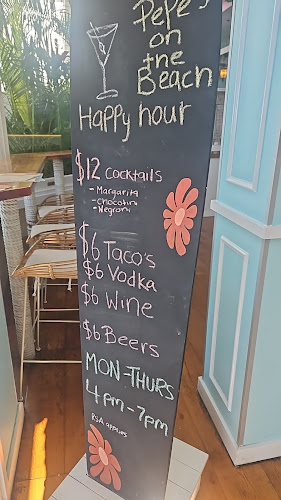 Pepe's
on
the
Beach
Happy hour
$12 cocktails
- Margarita
- chocotini
- Negroni
$6 Taco's
$6 Vodka
$6 Wine
$6 Beers
MON-THURS
4pm-7pm
RSA applies